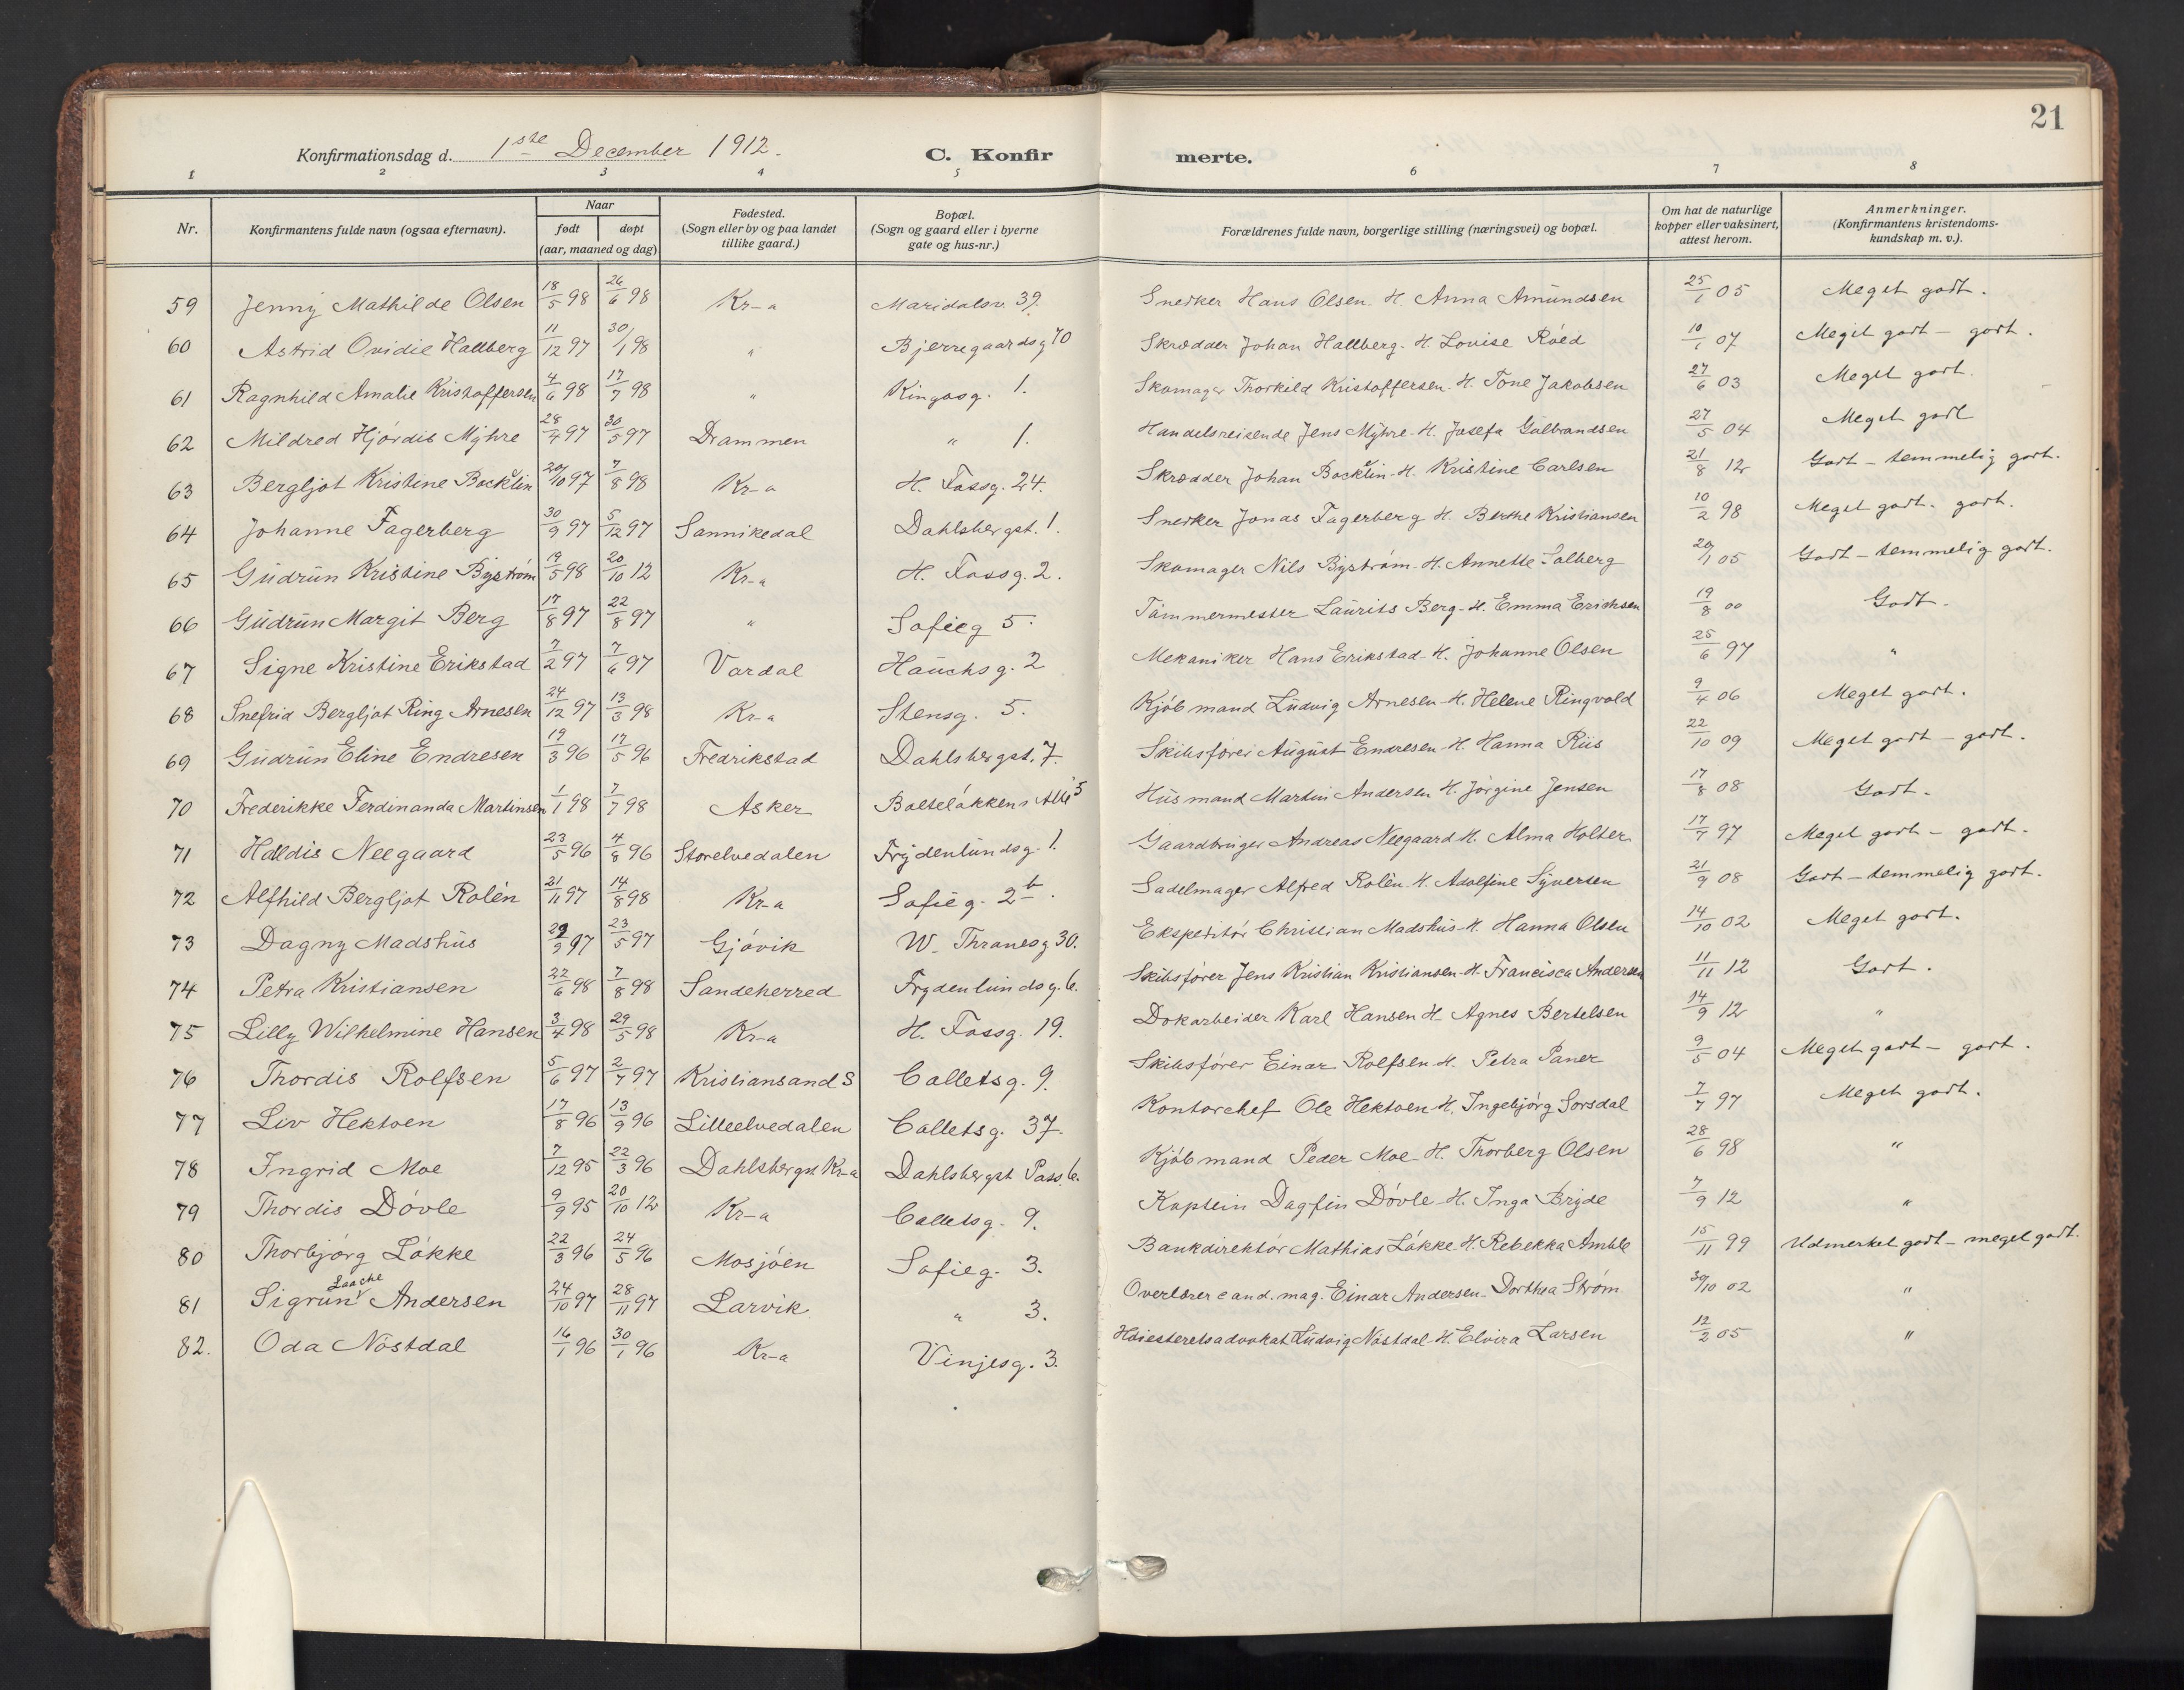 21
Konfirmationsdag d. 1ste December 1912. C. Konfirmerte.
1 2 3 4 5 6 7 8
Nr. Konfirmantens fulde navn (ogsaa efternavn). Naar født døpt (aar, maaned og dag) Fødested. (Sogn eller by og paa landet tillike gaard.) Bopæl. (Sogn og gaard eller i byerne gate og hus-nr.) Forældrenes fulde navn, borgerlige stilling (næringsvei) og bopæl. Om hat de naturlige kopper eller vaksinert, attest herom. Anmerkninger. (Konfirmantens kristendomskundskap m. v.).
59 Jenny Mathilde Olsen 18/5 98 26/6 98 Kr-a Maridalsv. 39. Snedker Hans Olsen. H. Anna Amundsen 25/1 05 Meget godt.
60 Astrid Ovidie Hallberg 11/12 97 30/1 98 " Bjerregaardsg 70 Skrædder Johan Hallberg. H. Louise Röed 10/1 07 Meget godt - godt.
61 Ragnhild Amalie Kristoffersen 4/6 98 17/7 98 " Kingosg. 1. Skomager Thorkild Kristoffersen. H. Tone Jakobsen 27/6 03 Meget godt.
62 Mildred Hjördis Myhre 28/4 97 30/5 97 Drammen " 1. Handelsreisende Jens Myhre. H. Josefa Gulbrandsen 27/5 04 Meget godt
63 Bergljot Kristine Bocklin 20/10 97 7/8 98 Kr-a H. Fossg. 24. Skrædder Johan Bocklin - H. Kristine Carlsen 21/8 12 Godt - temmelig godt.
64 Johanne Fagerberg 30/9 97 5/12 97 Sannikedal Dahlsbergst. 1. Snedker Jonas Fagerberg H. Berthe Kristiansen 10/2 98 Meget godt. godt.
65 Gudrun Kristine Byström 19/5 98 20/10 12 Kr-a H. Fossg. 2. Skomager Nils Byström. H. Annette Solberg 20/1 05 Godt - temmelig godt.
66 Gudrun Margit Berg 17/8 97 22/8 97 " Sofieg 5. Tömmermester Laurits Berg - H. Emma Erichsen 19/8 00 Godt.
67 Signe Kristine Erikstad 7/2 97 7/6 97 Vardal Hauchsg. 2 Mekaniker Hans Erikstad - H. Johanne Olsen 25/6 97 "
68 Snefrid Bergljot Ring Arnesen 24/12 97 13/3 98 Kr-a Stensg. 5. Kjöbmand Ludvig Arnesen - H. Helene Ringvold 9/4 06 Meget godt.
69 Gudrun Eline Endresen 19/3 96 17/5 96 Fredrikstad Dahlsbergst. 7. Skibsförer August Endresen - H. Hanna Riis 22/10 09 Meget godt - godt.
70 Frederikke Ferdinanda Martinsen 1/1 98 7/7 98 Asker Bolteløkkens Allé 5 Husmand Martin Andersen H. Jörgine Jensen 17/8 08 Godt.
71 Halldis Neegaard 23/5 96 4/8 96 Storelvedalen Frydenlundsg. 1. Gaardbruger Andreas Neegaard H. Alma Holter 17/7 97 Meget godt - godt.
72 Alfhild Bergljot Rolén 21/11 97 14/8 98 Kr-a Sofieg. 2b. Sadelmager Alfred Rolén. H. Adolfine Syversen 21/9 08 Godt - temmelig godt.
73 Dagny Madshus 97 23/5 97 Gjövik W. Thranesg 30. Ekspeditör Christian Madshus - H. Hanna Olsen 14/10 02 Meget godt.
74 Petra Kristiansen 22/6 98 7/8 98 Sandeherred Frydenlundsg. 6. Skibsförer Jens Kristian Kristiansen - H. Francisca Andersen 11/11 12 Godt.
75 Lilly Wilhelmine Hansen 3/4 98 29/5 98 Kr-a H. Fossg. 19. Dokarbeider Karl Hansen H. Agnes Bertelsen 14/9 12 "
76 Thordis Rolfsen 5/6 97 2/7 97 Kristiansand S Colletsg. 9. Skibsförer Einar Rolfsen. H. Petra Paner 9/5 04 Meget godt - godt.
77 Liv Hektoen 17/8 96 13/9 96 Lilleelvedalen Colletsg. 37. Kontorchef Ole Hektoen - H. Ingebjörg Sorsdal 7/7 97 Meget godt.
78 Ingrid Moe 7/12 95 22/3 96 Dahlsbergst Kr-a Dahlsbergst Pass. 6. Kjöbmand Peder Moe - H. Thorberg Olsen 28/6 98 "
79 Thordis Dövle 9/9 95 20/10 12 Kr-a Colletsg. 9. Kaptein Dagfin Dövle - H. Inga Bryde 7/9 12 "
80 Thorbjörg Lökke 22/3 96 24/5 96 Mosjöen Sofieg. 3. Bankdirektör Mathias Lökke. H. Rebekka Amble 15/11 99 Udmerket godt - meget godt.
81 Sigrun Laache Andersen 24/10 97 28/11 97 Larvik " 3. Overlærer cand. mag. Einar Andersen - Dorthea Ström 30/10 02 "
82. Oda Nöstdal 16/1 96 30/1 96 Kr-a Vinjesg. 3. Höiesteretsadvokat Ludvig Nöstdal - H. Elvira Larsen 12/2 05 "